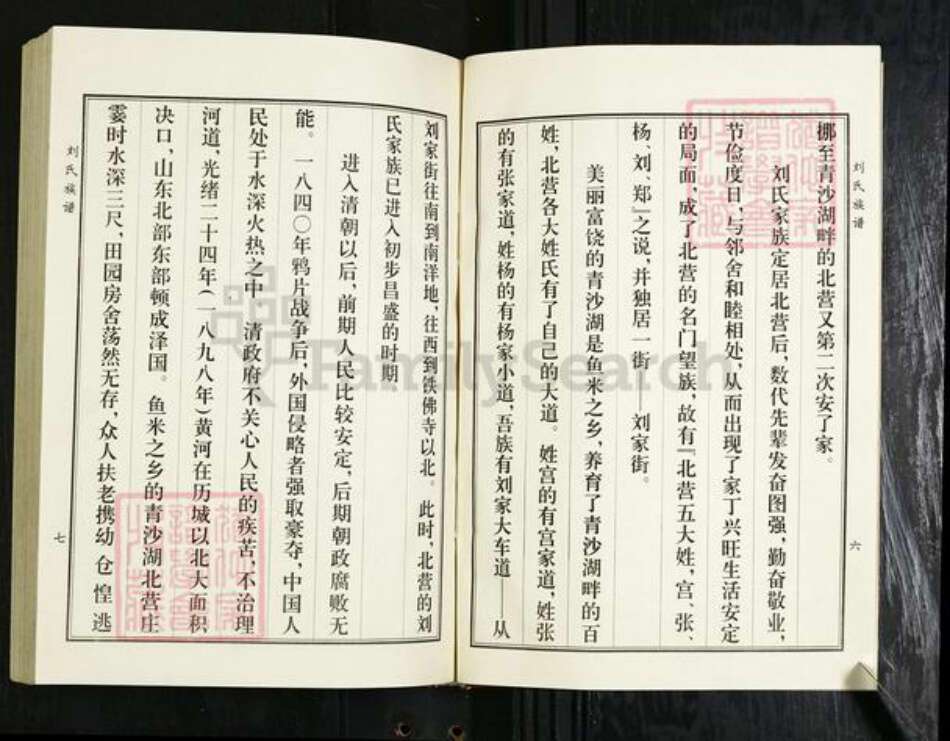 刘氏族谱
挪至青沙湖畔的北营又第二次安了家。
刘氏家族定居北营后，数代先辈发奋图强，勤奋敬业，
节俭度日，与邻舍和睦相处，从而出现了家丁兴旺生活安定
的局面，成了北营的名门望族，故有『北营五大姓，宫、张、
杨、刘、郑』之说，并独居一街——刘家街。
美丽富饶的青沙湖是鱼米之乡，养育了青沙湖畔的百
姓，北营各大姓氏有了自己的大道。姓宫的有宫家道，姓张
的有张家道，姓杨的有杨家小道，吾族有刘家大车道——从
六
刘家街往南到南洋地，往西到铁佛寺以北。此时，北营的刘
氏家族已进入初步昌盛的时期。
进入清朝以后，前期人民比较安定，后期朝政腐败无
能。一八四〇年鸦片战争后，外国侵略者强取豪夺，中国人
民处于水深火热之中 清政府不关心人民的疾苦，不治理
河道，光绪二十四年(一八九八年)黄河在历城以北大面积
决口，山东北部东部顿成泽国。鱼米之乡的青沙湖北营庄
霎时水深三尺，田园房舍荡然无存，众人扶老携幼 仓惶逃
刘氏族谱
七
FamilySearch